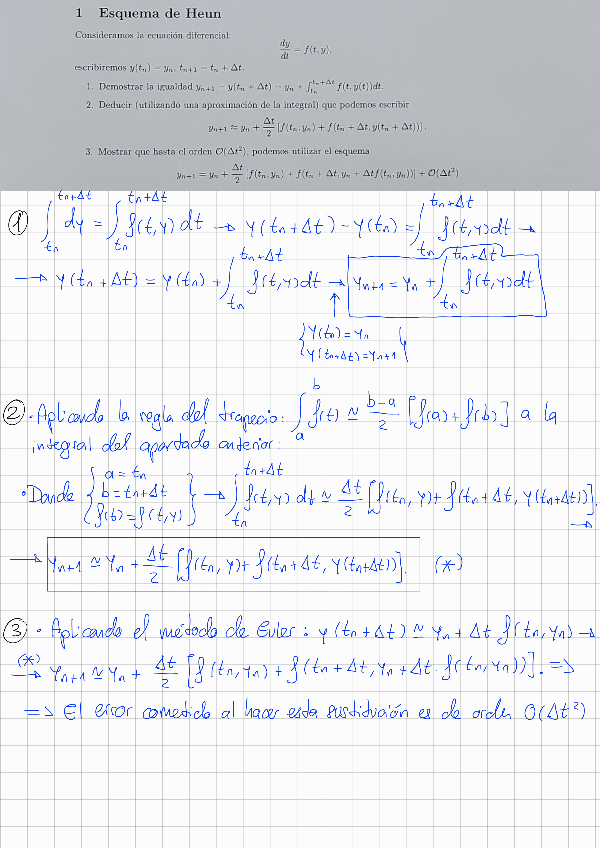 1 Esquema de Heun
Consideramos la ecuación diferencial:
dy/dt = f(t, y),
escribiremos y(tₙ) = yₙ, tₙ₊₁ = tₙ + Δt.
1. Demostrar la igualdad yₙ₊₁ = y(tₙ + Δt) = yₙ + ∫_{tₙ}^{tₙ+Δt} f(t, y(t))dt.
2. Deducir (utilizando una aproximación de la integral) que podemos escribir
yₙ₊₁ ≈ yₙ + Δt/2 [f(tₙ, yₙ) + f(tₙ + Δt, y(tₙ + Δt))].
3. Mostrar que hasta el orden O(Δt²), podemos utilizar el esquema
yₙ₊₁ = yₙ + Δt/2 [f(tₙ, yₙ) + f(tₙ + Δt, yₙ + Δtf(tₙ, yₙ))] + O(Δt²)
① ∫_{tₙ}^{tₙ+Δt} dy = ∫_{tₙ}^{tₙ+Δt} f(t,y) dt → y(tₙ+Δt) - y(tₙ) = ∫_{tₙ}^{tₙ+Δt} f(t,y)dt →
→ y(tₙ+Δt) = y(tₙ) + ∫_{tₙ}^{tₙ+Δt} f(t,y)dt → yₙ₊₁ = yₙ + ∫_{tₙ}^{tₙ+Δt} f(t,y)dt
{ y(tₙ) = yₙ
y(tₙ+Δt) = yₙ₊₁ }
② · Aplicando la regla del trapecio: ∫_a^b f(t) ≃ b-a/2 [f(a)+f(b)] a la
integral del apartado anterior:
· Donde { a = tₙ
b = tₙ+Δt
f(b) = f(t,y) } → ∫_{tₙ}^{tₙ+Δt} f(t,y) dt ≃ Δt/2 [f(tₙ, y)+ f(tₙ+Δt, y(tₙ+Δt))]. →
→ yₙ₊₁ ≃ yₙ + Δt/2 [f(tₙ, y)+ f(tₙ+Δt, y(tₙ+Δt))]. (*)
③ · Aplicando el método de Euler: y(tₙ+Δt) ≃ yₙ + Δt f(tₙ, yₙ) →
(*) → yₙ₊₁ ≃ yₙ + Δt/2 [f(tₙ, yₙ) + f(tₙ+Δt, yₙ + Δt · f(tₙ, yₙ))]. =>
=> El error cometido al hacer esta sustitución es de orden O(Δt²)